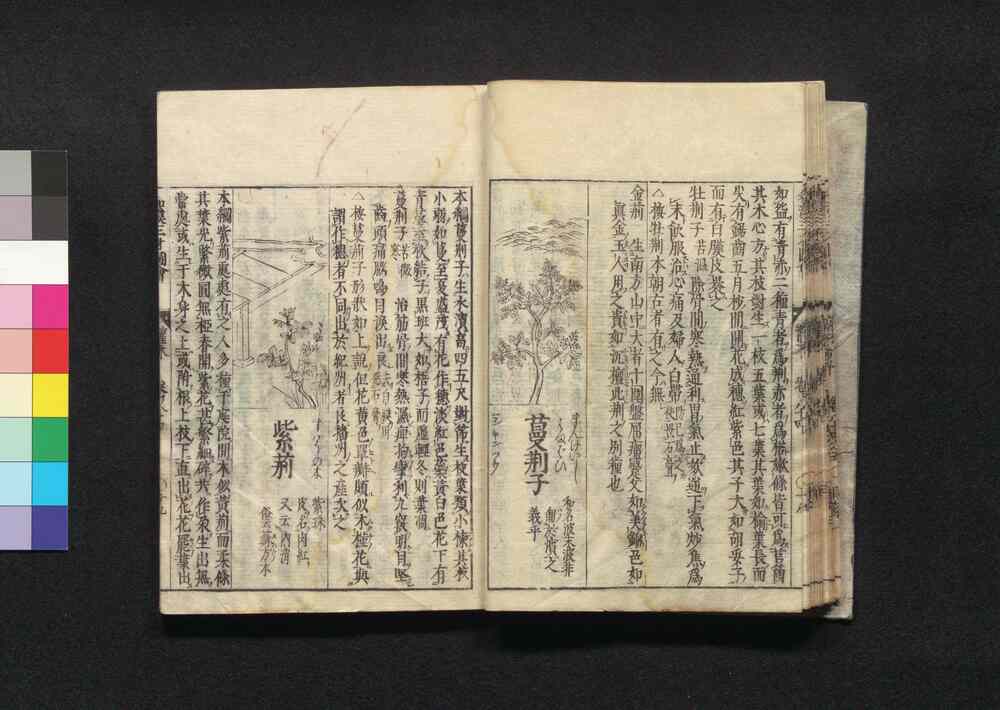 如盌有青赤二種青者為荊赤者為楛嫩條皆可為筥𥭒
其木心方其枝對生一枝五葉或七葉其葉如榆葉長而
尖有鋸齒五月杪間開花成穗紅紫色其子大如胡荽子
而有白膜皮裹之
牡荊子 苦溫 除骨間寒熱通利胃氣止欬逆下氣炒焦為
末飲服治心痛及婦人白帶
△按牡荊本朝古者有之今無
金荊 生南方山中大者十圍盤屈瘤蹙文如美錦色如
真金工人用之貴如沉檀此荊之別種也
蔓荊子
まんけいし
はまはひ
マンキンツウ
義乎
本綱蔓荊子生水濱高四五尺對節生枝葉類小楝其莢
小弱如蔓至夏盛茂有花作穗淡紅色蕊黃白色花下有
青萼至秋結子黑斑大如梧子而虛輕冬則葉凋
蔓荊子 苦微寒 治筋骨間寒熱濕痺拘攣利九竅明目堅
齒頭痛腦鳴目淚出
△按蔓荊子形狀如上說但花黃色單瓣頗似木槿花與
謂作穗者不同出於紀州者良播州之產次之
紫荊
紫珠
皮名肉紅
又云內消
俗云蘇方木
本綱紫荊處處有之人多種于庭院間木似黃荊而柔條
其葉光緊微圓無椏春開紫花甚繁細碎共作朵生出無
常處或生于木身之上或附根上枝下直出花花罷葉出